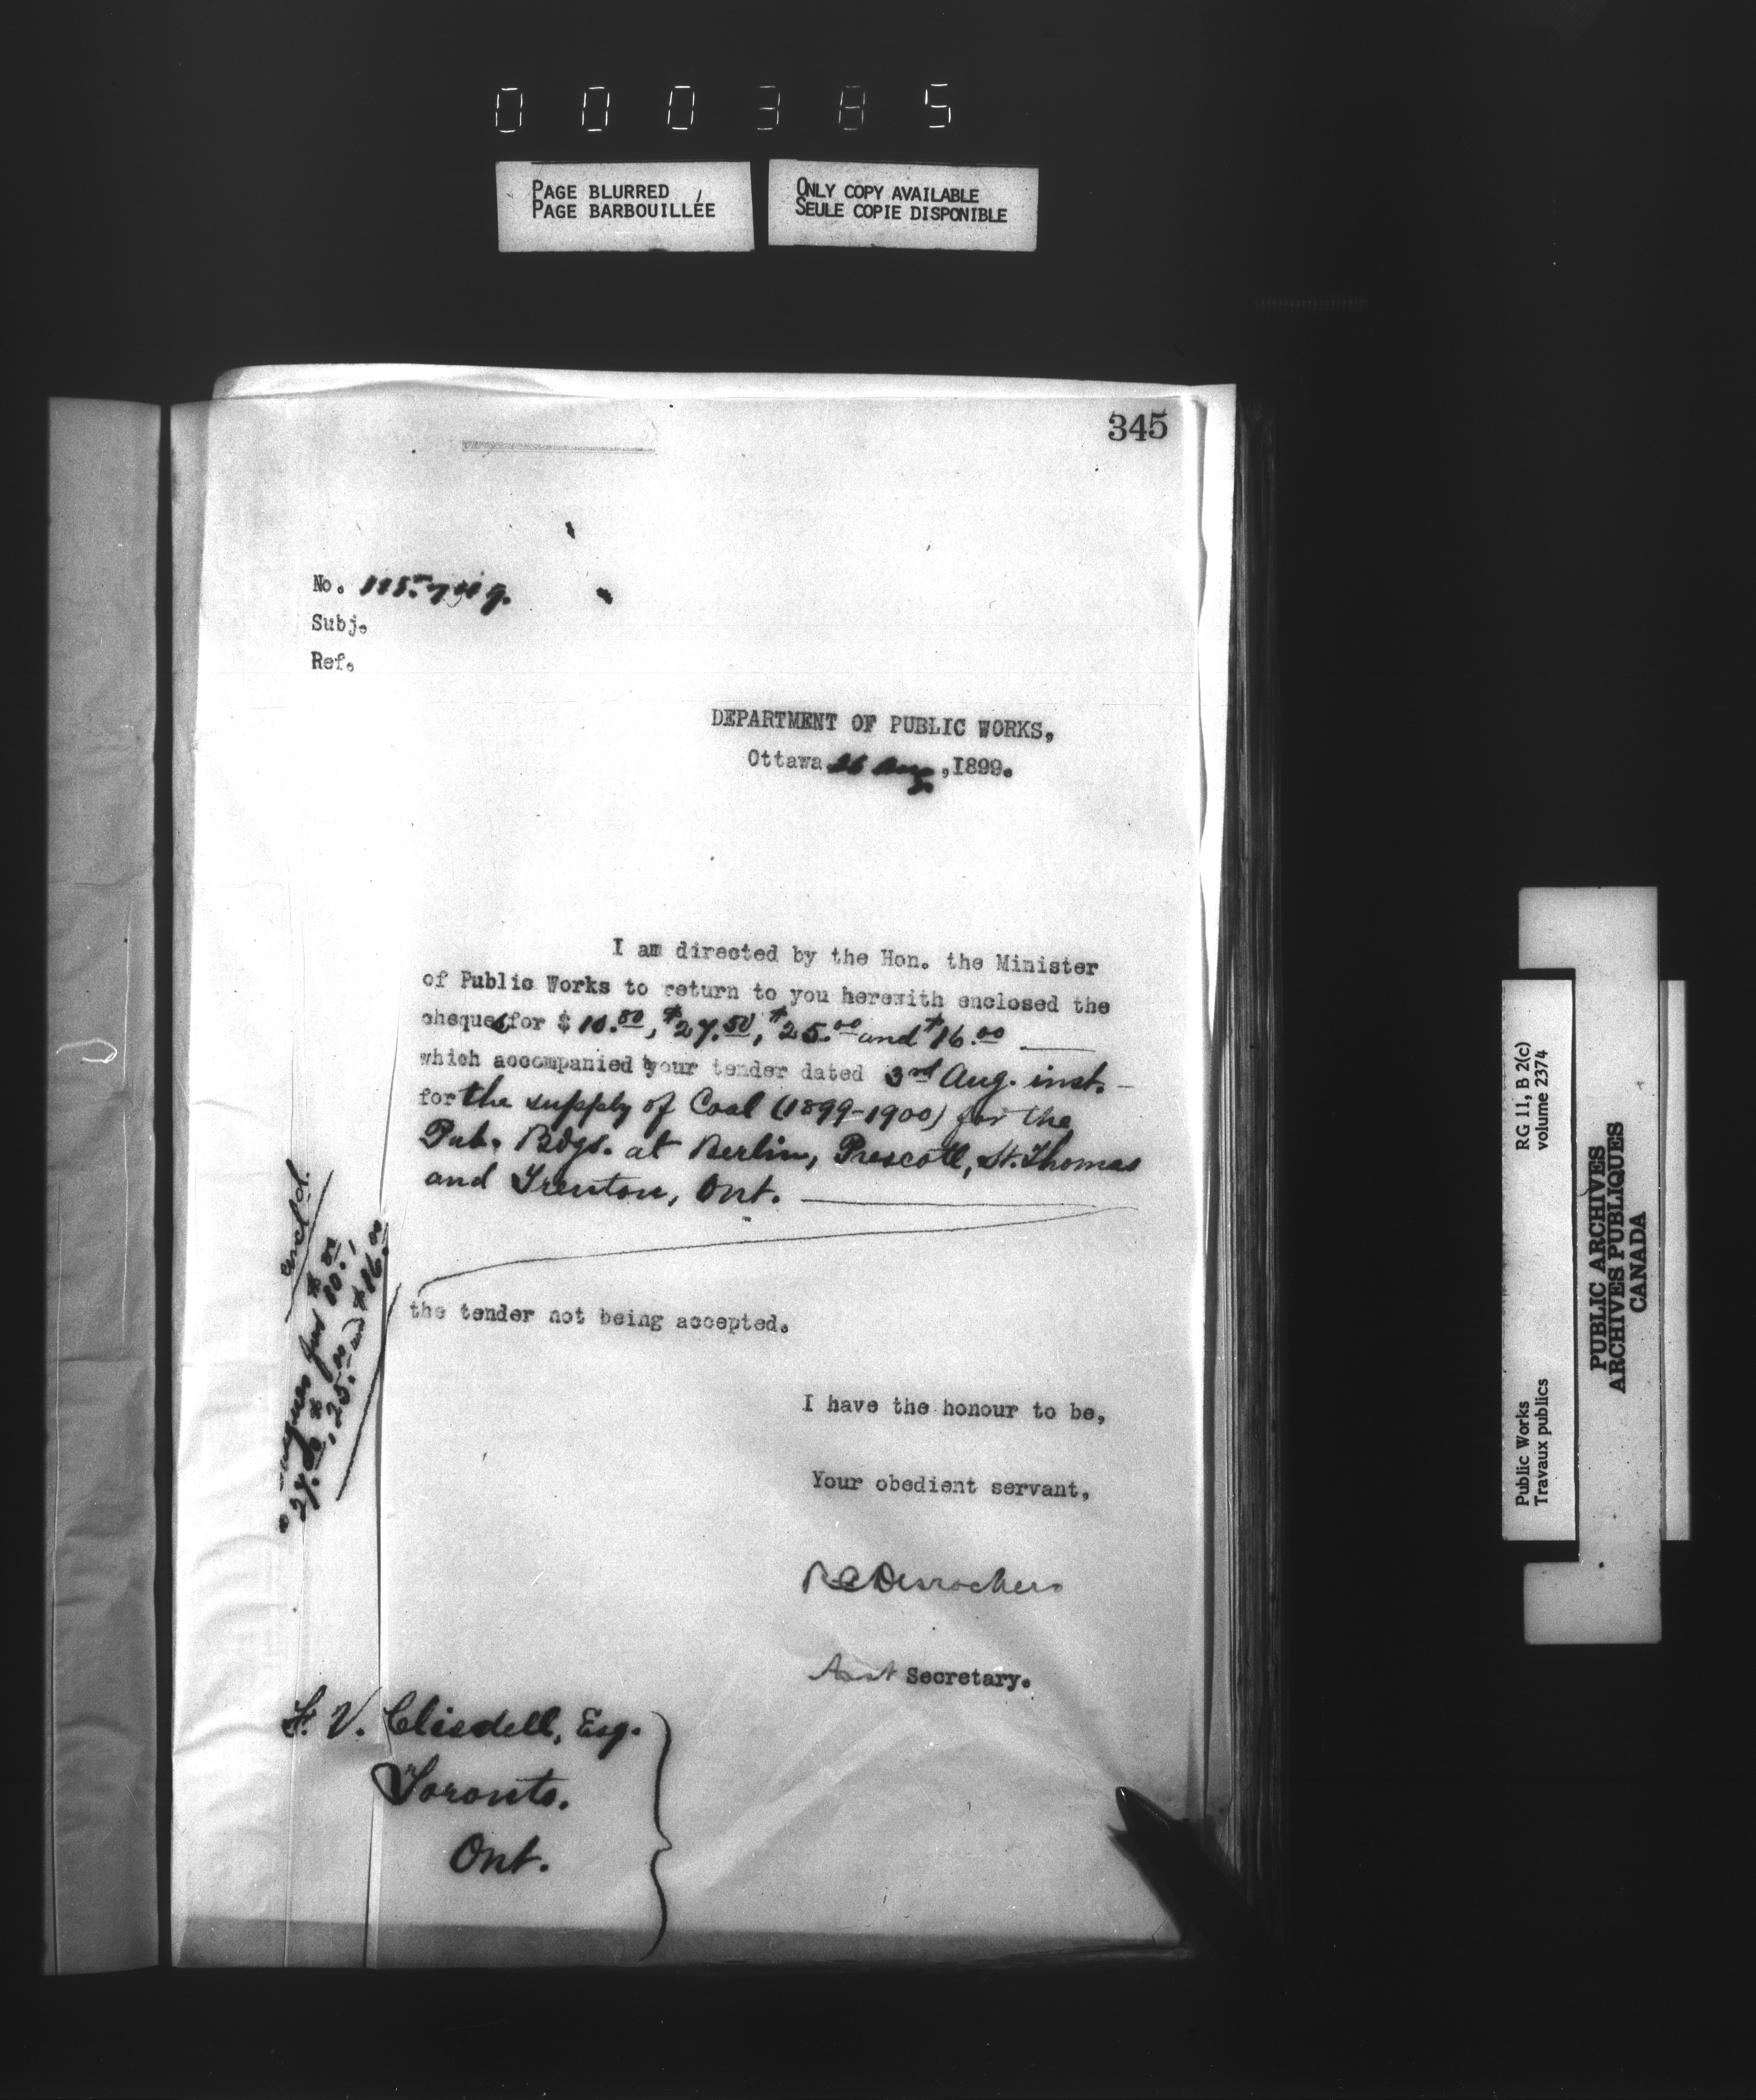 000385
PAGE BLURRED
PAGE BARBOUILLÉE
ONLY COPY AVAILABLE
SEULE COPIE DISPONIBLE
345
No.
Subj.
Ref.
DEPARTMENT OF PUBLIC WORKS,
Ottawa 26 Aug., 1899.
I am directed by the Hon. the Minister
of Public Works to return to you herewith enclosed the
cheques for $10.80, $27.50, $25.00 and $16.00
which accompanied your tender dated 3rd Aug. inst.
for the supply of Coal (1899-1900) for the
Pub. Bdgs. at Berlin, Prescott, St. Thomas
and Trenton, Ont.
the tender not being accepted.
encl'd.
for $10.80,
27.50, $25.00 and $16.00
I have the honour to be,
Your obedient servant,
RC Desrochers
Asst Secretary.
F. V. Clisdell, Esq.
Toronto.
Ont.
RG 11, B 2(c)
volume 2374
Public Works
Travaux publics
PUBLIC ARCHIVES
ARCHIVES PUBLIQUES
CANADA